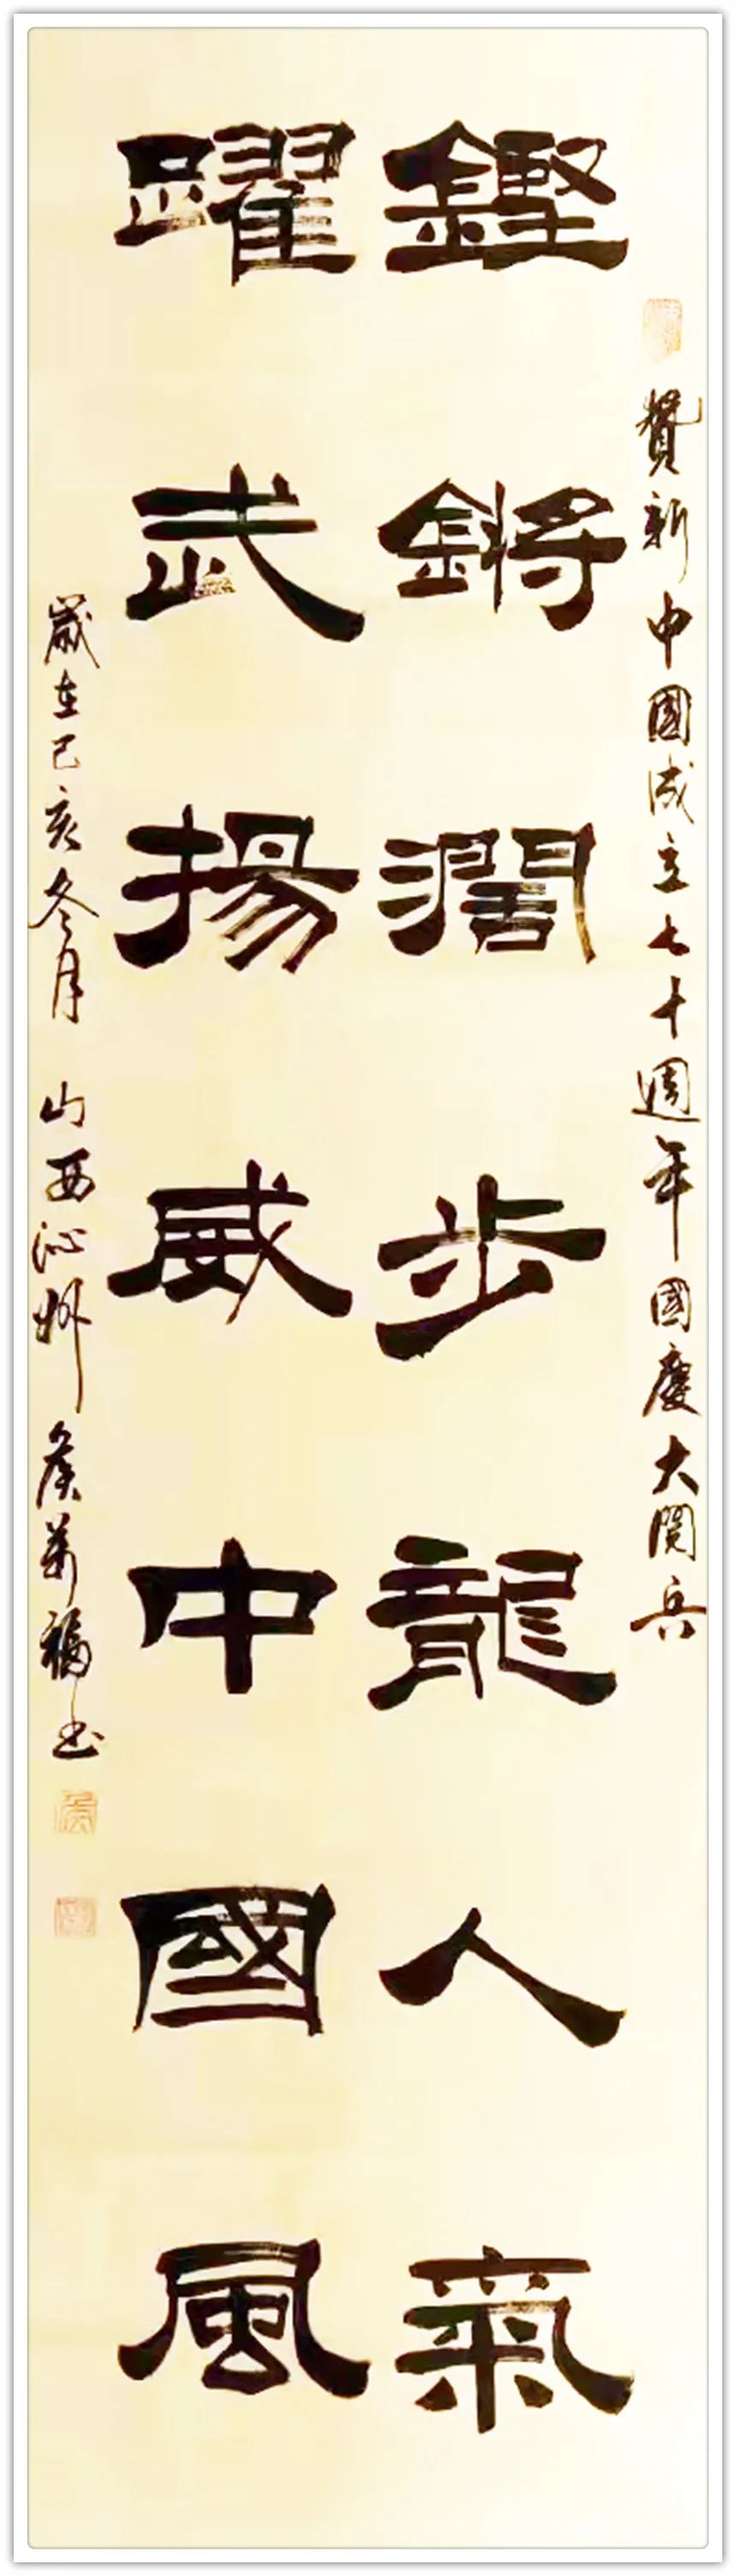 贊新中國成立七十週年國慶大閱兵
鏗鏘濶步龍人氣
躍武揚威中國風
歲在己亥冬月 山西沁州 侯萬福书